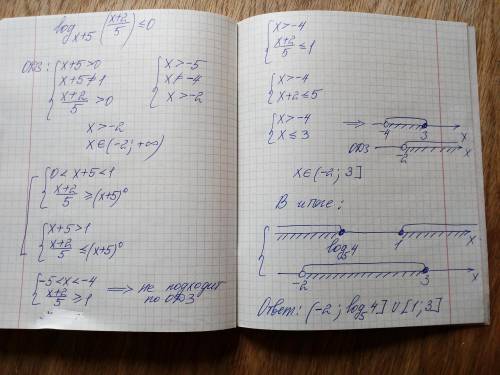 log x+5 (x+2/5) ≤ 0
ОДЗ: { x+5>0 { x>-5
x+5≠1 x≠-4
x+2/5 >0 x>-2
x>-2
x∈(-2; +∞)
[ { 0<x+5<1
x+2/5 ≥ (x+5)⁰
{ x+5>1
x+2/5 ≤ (x+5)⁰
{ -5<x<-4
x+2/5 ≥ 1 ⟹ не подходит
по ОДЗ
{ x>-4
x+2/5 ≤ 1
{ x>-4
x+2≤5
{ x>-4
x≤3 ⟹ -4 3 x
ОДЗ -2 x
x∈(-2; 3]
В итоге:
log₅4 1 x
-2 3 x
Ответ: (-2; log₅4] ∪ [1; 3]